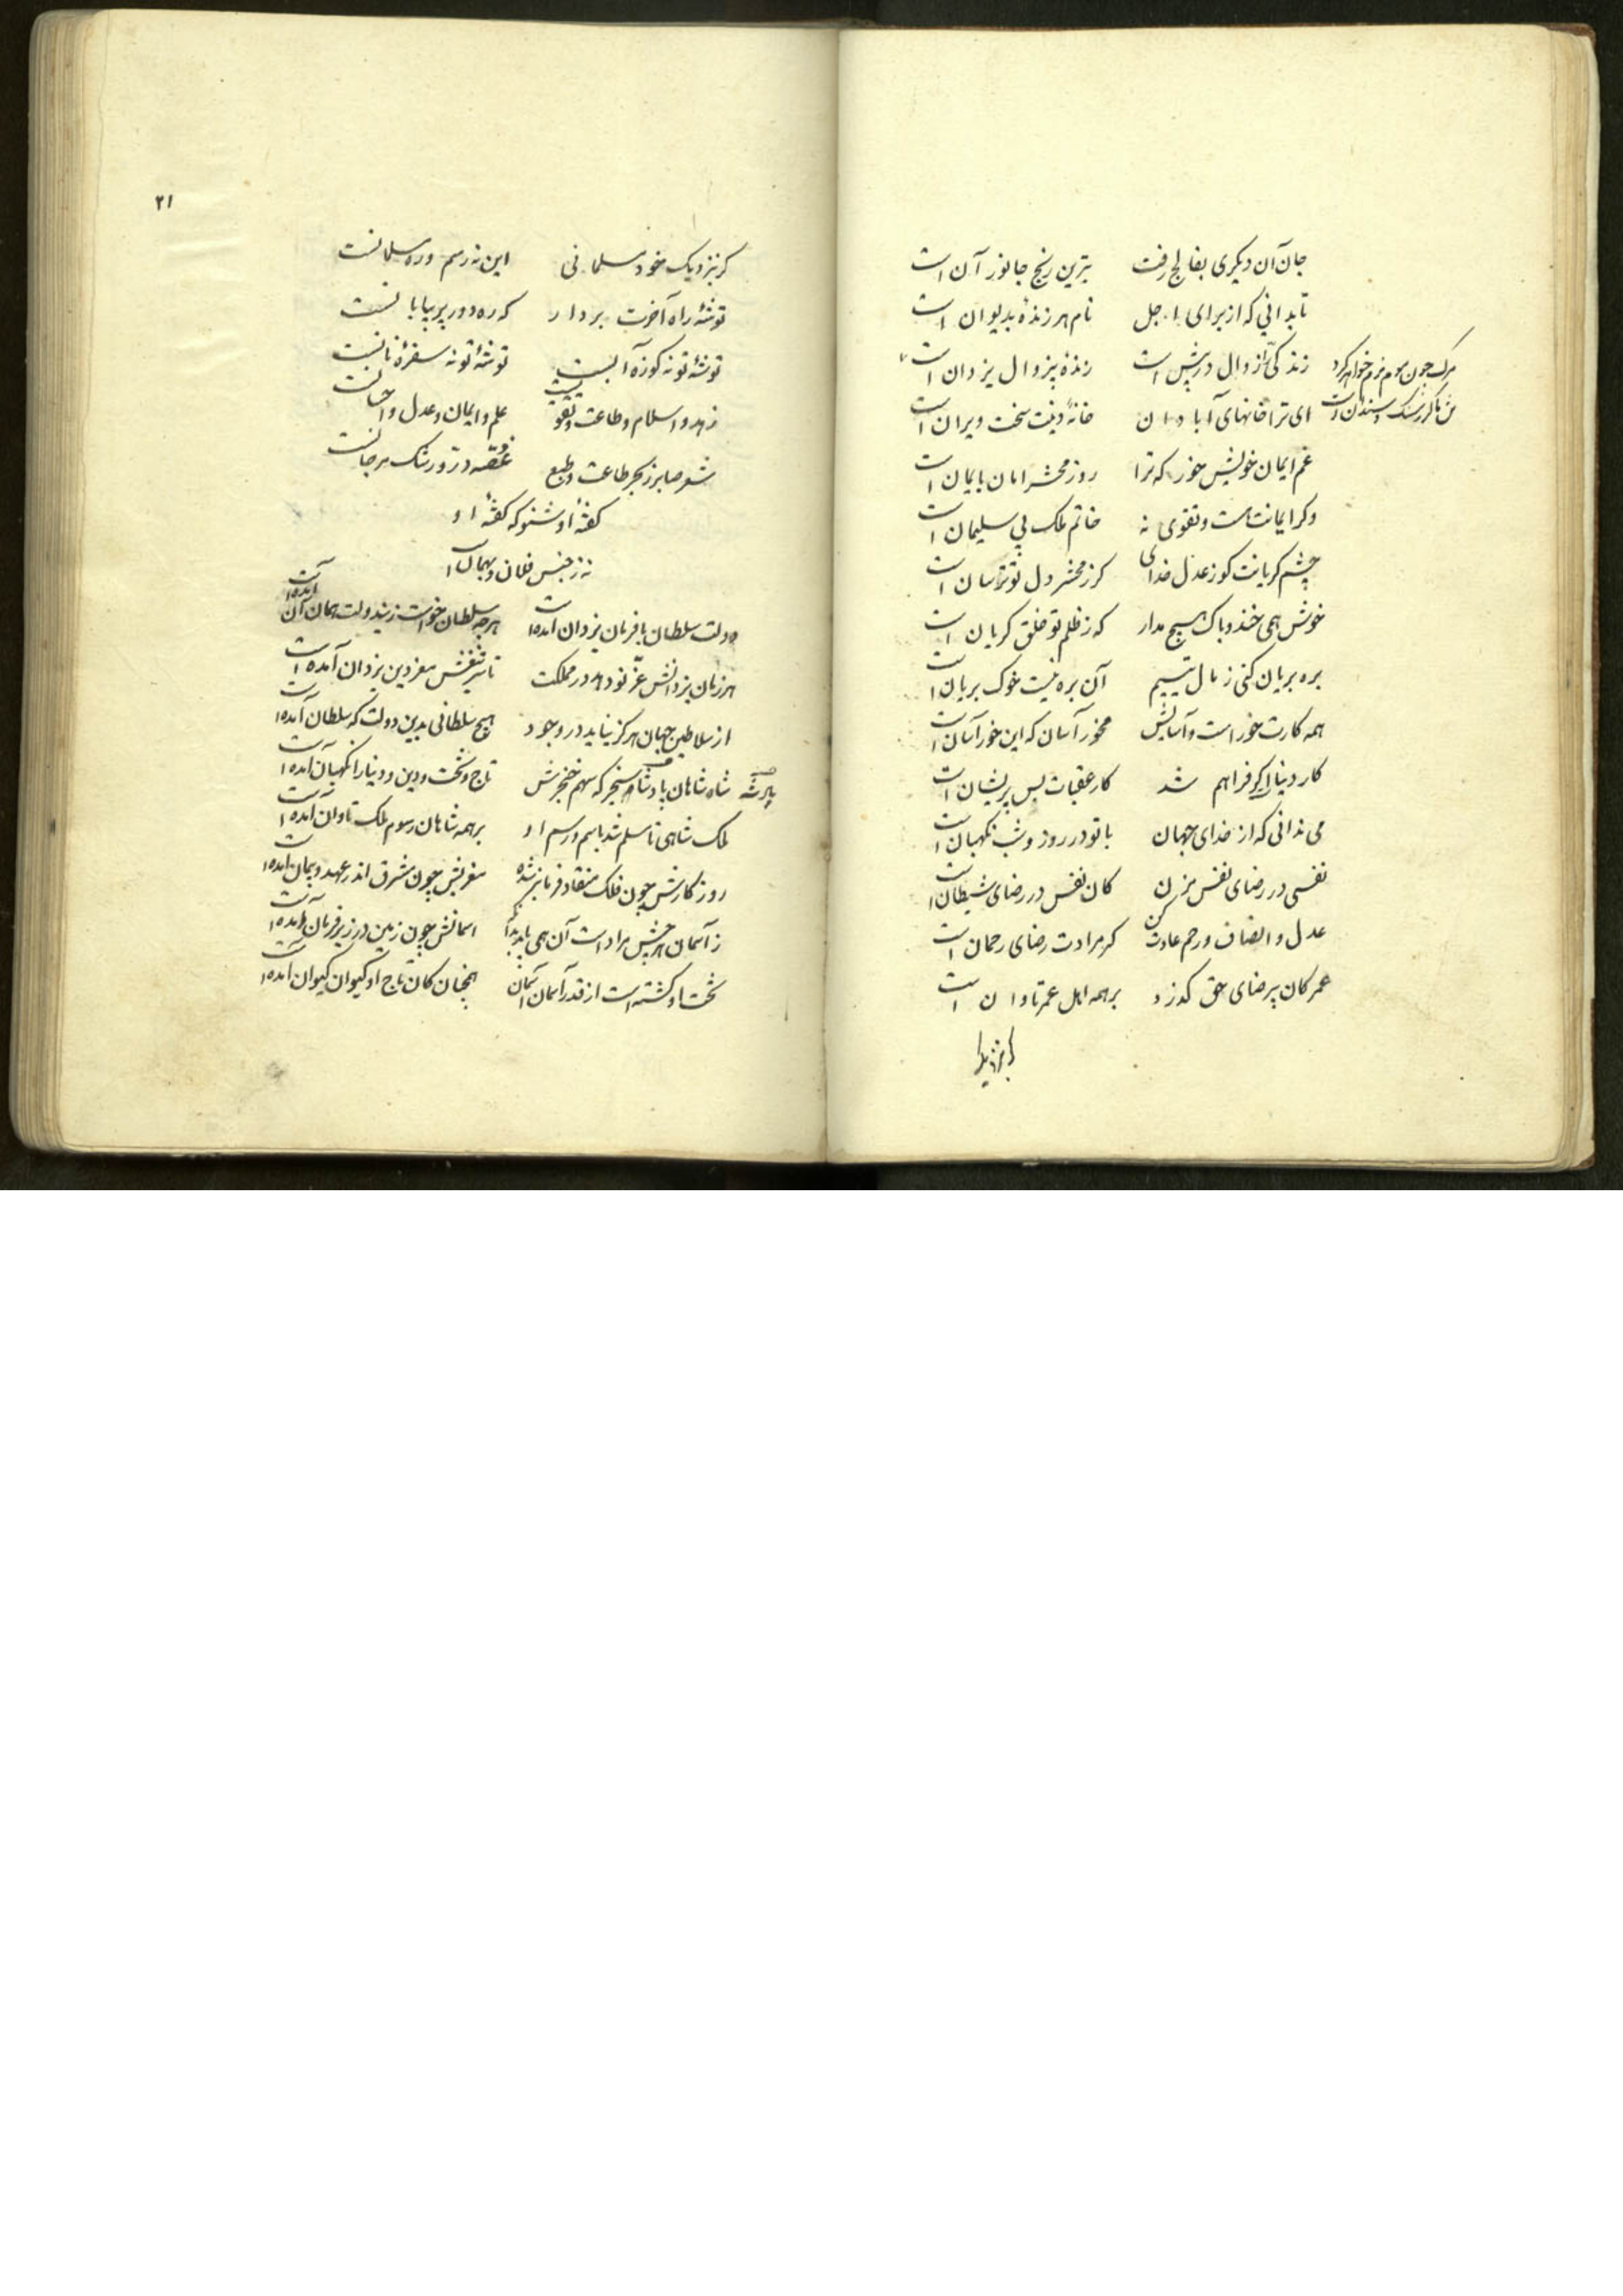 جان آن دیکری بفالج رفت بترین رنج جانور آن است
تا بدانی که از برای اجل نام هر زندهٔ بدیوان است
زندکی را زوال در پیش است زندهٔ بیزوال یزدان است
مرک چون موم نرم خواهد کرد
تن ما کر ز سنک و سندان است
ای ترا خانهای آبادان خانهٔ دینت سخت ویران است
غم ایمان خویش خور که ترا روز محشر امان بایمان است
وکر ایمانت هست و تقوی نه خاتم ملک بی سلیمان است
چشم کریانت کو ز عدل خدای کر ز محشر دل تو ترسان است
خوش همی خند و باک هیچ مدار که ز ظلم تو خلق کریان است
بره بریان کنی ز مال یتیم آن بره نیست خوک بریان است
همه کارت خور است و آسایش مخور آسان که این خور آسان است
کار دنیا اکر فراهم شد کار عقبات بس پریشان است
می ندانی که از خدای جهان با تو در روز و شب نکهبان است
نفسی در رضای نفس مزن کان نفس در رضای شیطان است
عدل و انصاف و رحم عادت کن کر مرادت رضای رحمان است
عمر کان بیرضای حق کذرد بر همه اهل عمر تاوان است
کر بنزدیک
۲۱
کر بنزدیک خود مسلمانی این نه رسم و ره مسلمانست
توشهٔ راه آخرت بردار که ره دور پر بیابانست
توشهٔ تو نه کوزهٔ آبست توشهٔ تو نه سفرهٔ نانست
زهد و اسلام و طاعت و تقویست علم و ایمان و عدل و احسانست
شعر صابر ز بحر طاعت و طبع غصه در و رشک مرجانست
کفتهٔ او شنو که کفتهٔ او
نه ز جنس فلان و بهمان است
دولت سلطان بافرمان یزدان آمده است هرچه سلطان خواست زین دولت همان آن آمده است
هر زمان یزدانش عز نو دهد در مملکت تا سر تیغش معز دین یزدان آمده است
از سلاطین جهان هرکز نیاید در وجود هیچ سلطانی بدین دولت که سلطان آمده است
شاه شاهان پادشا سنجر که سهم خنجرش تاج و تخت و دین و دنیا را نکهبان آمده است
ملک شاهی تا مسلم شد باسم و رسم او بر همه شاهان رسوم ملک تاوان آمده است
روزکارش چون فلک منقاد فرمانبر شده مغربش چون مشرق اندر عهد و پیمان آمده است
ز آسمان هرچش مراد است آن همی یابد از آنک آسمانش چون زمین در زیر فرمان آمده است
تخت او کشته است از قدر آسمان آسمان همچنان کان تاج او کیوان کیوان آمده است